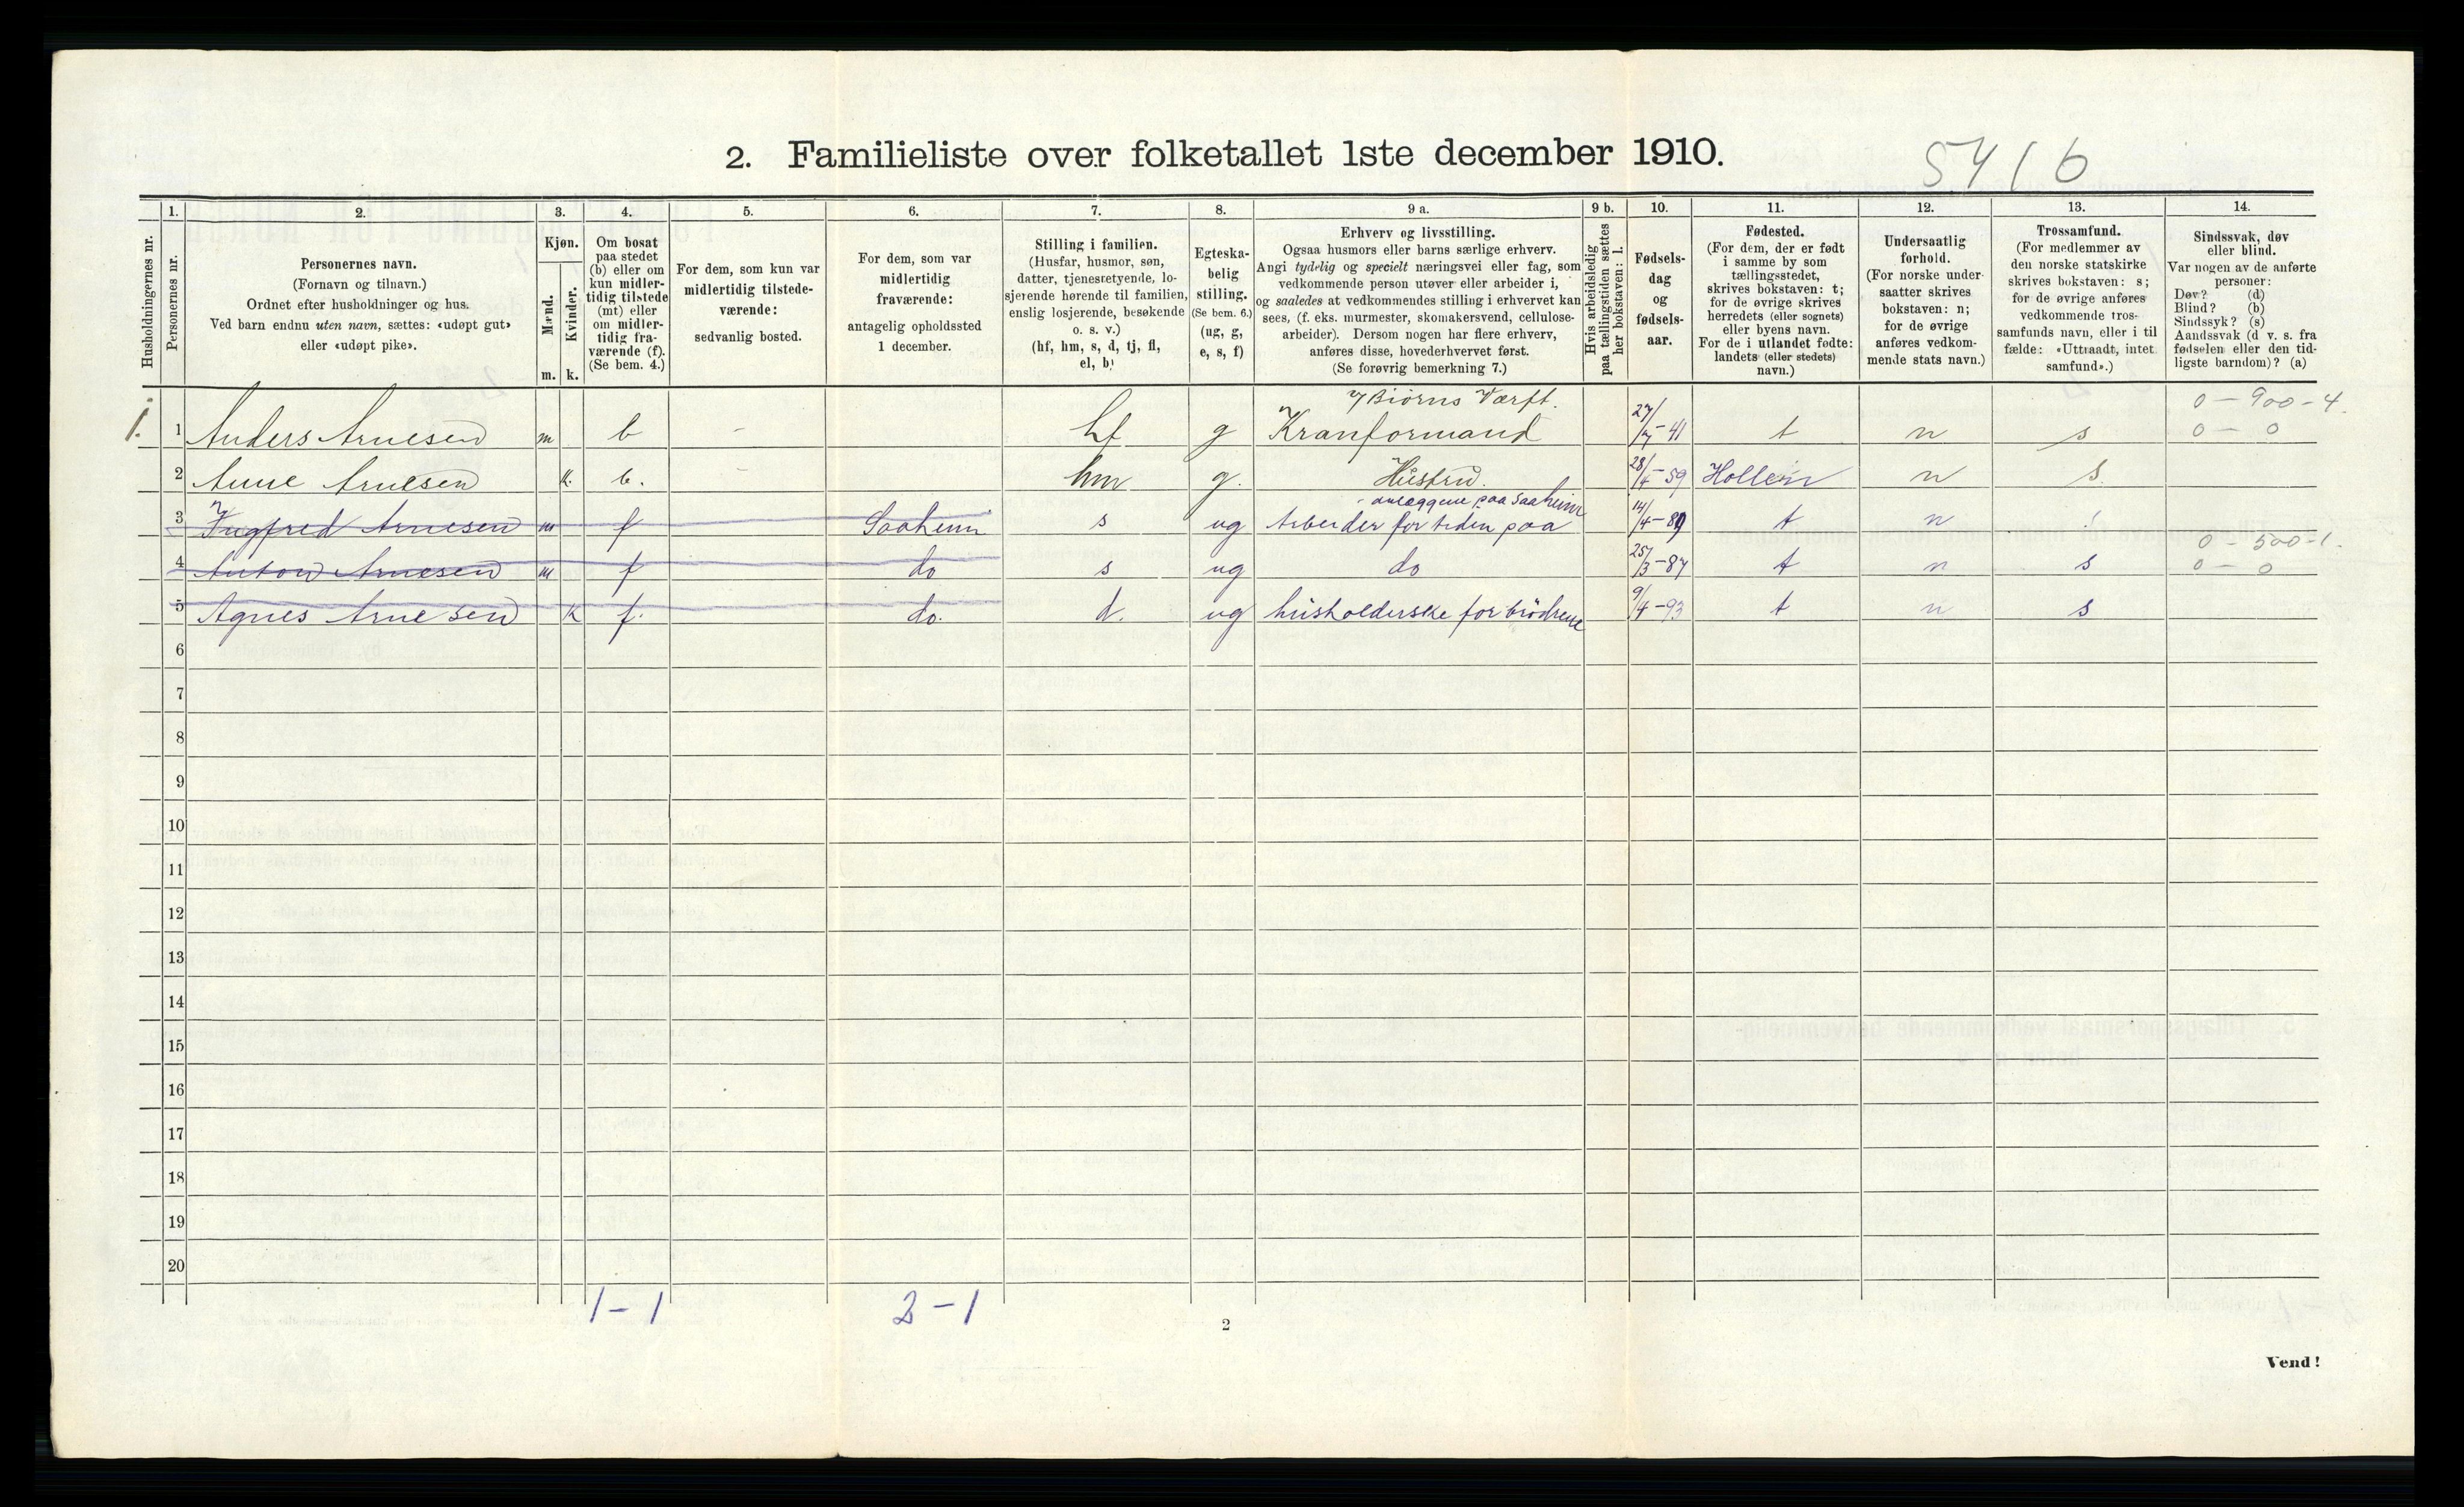 2. Familieliste over folketallet 1ste december 1910.
5416
1. 2. 3. 4. 5. 6. 7. 8. 9 a. 9 b. 10. 11. 12. 13. 14.
Husholdningernes nr.
Personernes nr.
Personernes navn.
(Fornavn og tilnavn.)
Ordnet efter husholdninger og hus.
Ved barn endnu uten navn, sættes: «udøpt gut»
eller «udøpt pike».
Kjøn.
Mænd.
Kvinder.
m. k.
Om bosat
paa stedet
(b) eller om
kun midler-
tidig tilstede
(mt) eller
om midler-
tidig fra-
værende (f).
(Se bem. 4.)
For dem, som kun var
midlertidig tilstede-
værende:
sedvanlig bosted.
For dem, som var
midlertidig
fraværende:
antagelig opholdssted
1 december.
Stilling i familien.
(Husfar, husmor, søn,
datter, tjenestetyende, lo-
sjerende hørende til familien,
enslig losjerende, besøkende
o. s. v.)
(hf, hm, s, d, tj, fl,
el, b)
Egteska-
belig
stilling.
(Se bem. 6.)
(ug, g,
e, s, f)
Erhverv og livsstilling.
Ogsaa husmors eller barns særlige erhverv.
Angi tydelig og specielt næringsvei eller fag, som
vedkommende person utøver eller arbeider i,
og saaledes at vedkommendes stilling i erhvervet kan
sees, (f. eks. murmester, skomakersvend, cellulose-
arbeider). Dersom nogen har flere erhverv,
anføres disse, hovederhvervet først.
(Se forøvrig bemerkning 7.)
Hvis arbeidsledig
paa tællingstiden sættes
her bokstaven: l.
Fødsels-
dag
og
fødsels-
aar.
Fødested.
(For dem, der er født
i samme by som
tællingsstedet,
skrives bokstaven: t;
for de øvrige skrives
herredets (eller sognets)
eller byens navn.
For de i utlandet fødte:
landets (eller stedets)
navn.)
Undersaatlig
forhold.
(For norske under-
saatter skrives
bokstaven: n;
for de øvrige
anføres vedkom-
mende stats navn.)
Trossamfund.
(For medlemmer av
den norske statskirke
skrives bokstaven: s;
for de øvrige anføres
vedkommende tros-
samfunds navn, eller i til-
fælde: «Uttraadt, intet
samfund».)
Sindssvak, døv
eller blind.
Var nogen av de anførte
personer:
Døv? (d)
Blind? (b)
Sindssyk? (s)
Aandssvak (d. v. s. fra
fødselen eller den tid-
ligste barndom)? (a)
Biørns Værft. 0 - 900 - 4.
1. 1 Anders Arnesen m b - hf g Kranformand 27/7-41 t n s 0 - 0
2 Anne Arnesen k. b. - hm g. Hustru. 28/4-59 Hollen n s.
anlæggene paa Saaheim
3 Ingfred Arnesen m f Saaheim s ug Arbeider for tiden paa 14/4-89 t n s
0 - 500-1.
4 Anton Arnesen m f do s ug do 25/3-87 t n s 0 - 0
5 Agnes Arnesen k f. do. d. ug husholderske for brödrene 9/4-93 t n s
6
7
8
9
10
11
12
13
14
15
16
17
18
19
20
1 - 1 2 - 1
2
Vend!